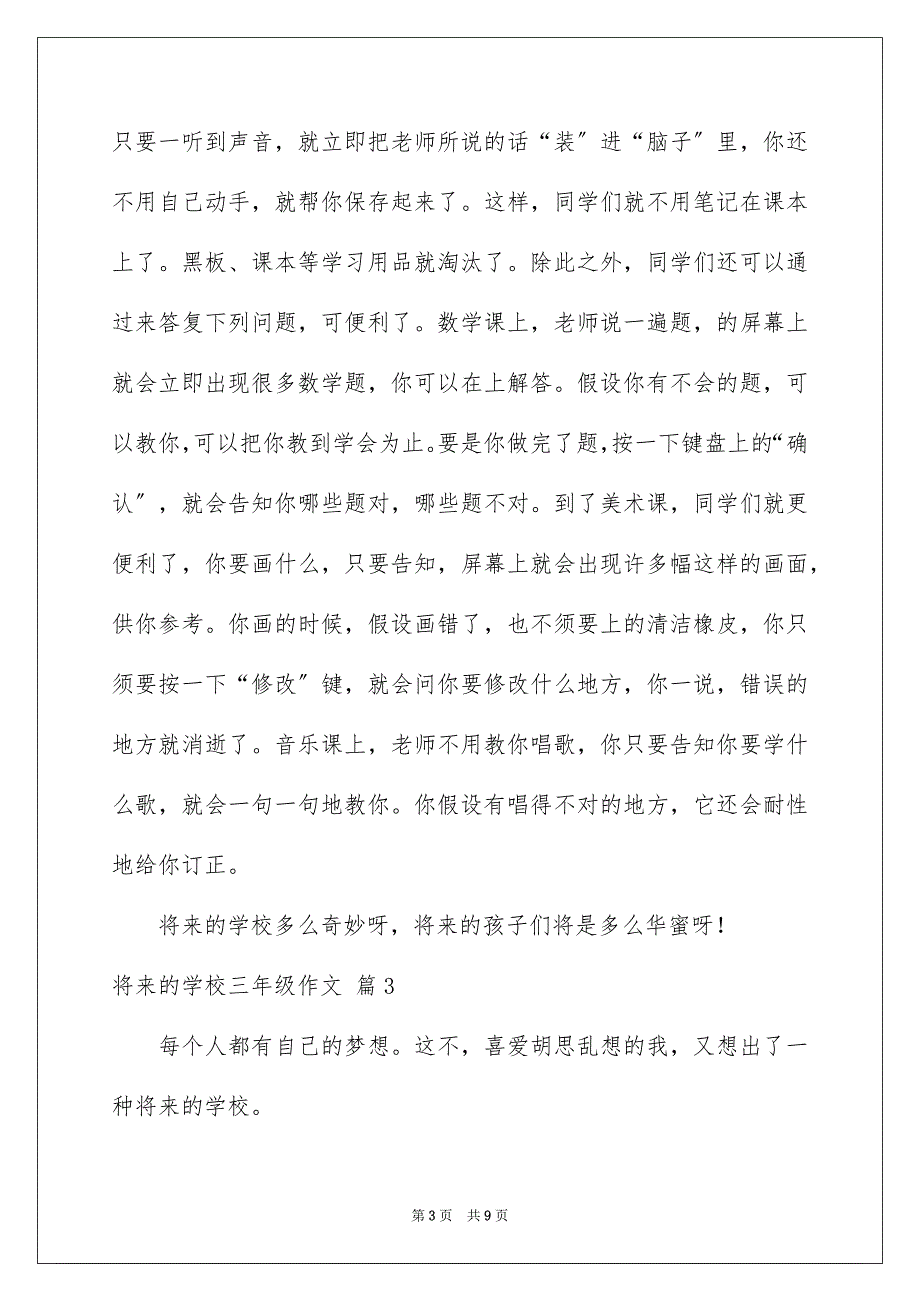 只要一听到声音，就立即把老师所说的话“装〞进“脑子〞里，你还
不用自己动手，就帮你保存起来了。这样，同学们就不用笔记在课本
上了。黑板、课本等学习用品就淘汰了。除此之外，同学们还可以通
过来答复下列问题，可便利了。数学课上，老师说一遍题，的屏幕上
就会立即出现很多数学题，你可以在上解答。假设你有不会的题，可
以教你，可以把你教到学会为止。要是你做完了题，按一下键盘上的“确
认〞，就会告知你哪些题对，哪些题不对。到了美术课，同学们就更
便利了，你要画什么，只要告知，屏幕上就会出现许多幅这样的画面，
供你参考。你画的时候，假设画错了，也不须要上的清洁橡皮，你只
须要按一下“修改〞键，就会问你要修改什么地方，你一说，错误的
地方就消逝了。音乐课上，老师不用教你唱歌，你只要告知你要学什
么歌，就会一句一句地教你。你假设有唱得不对的地方，它还会耐性
地给你订正。
将来的学校多么奇妙呀，将来的孩子们将是多么华蜜呀！
将来的学校三年级作文 篇3
每个人都有自己的梦想。这不，喜爱胡思乱想的我，又想出了一
种将来的学校。
第3页 共9页